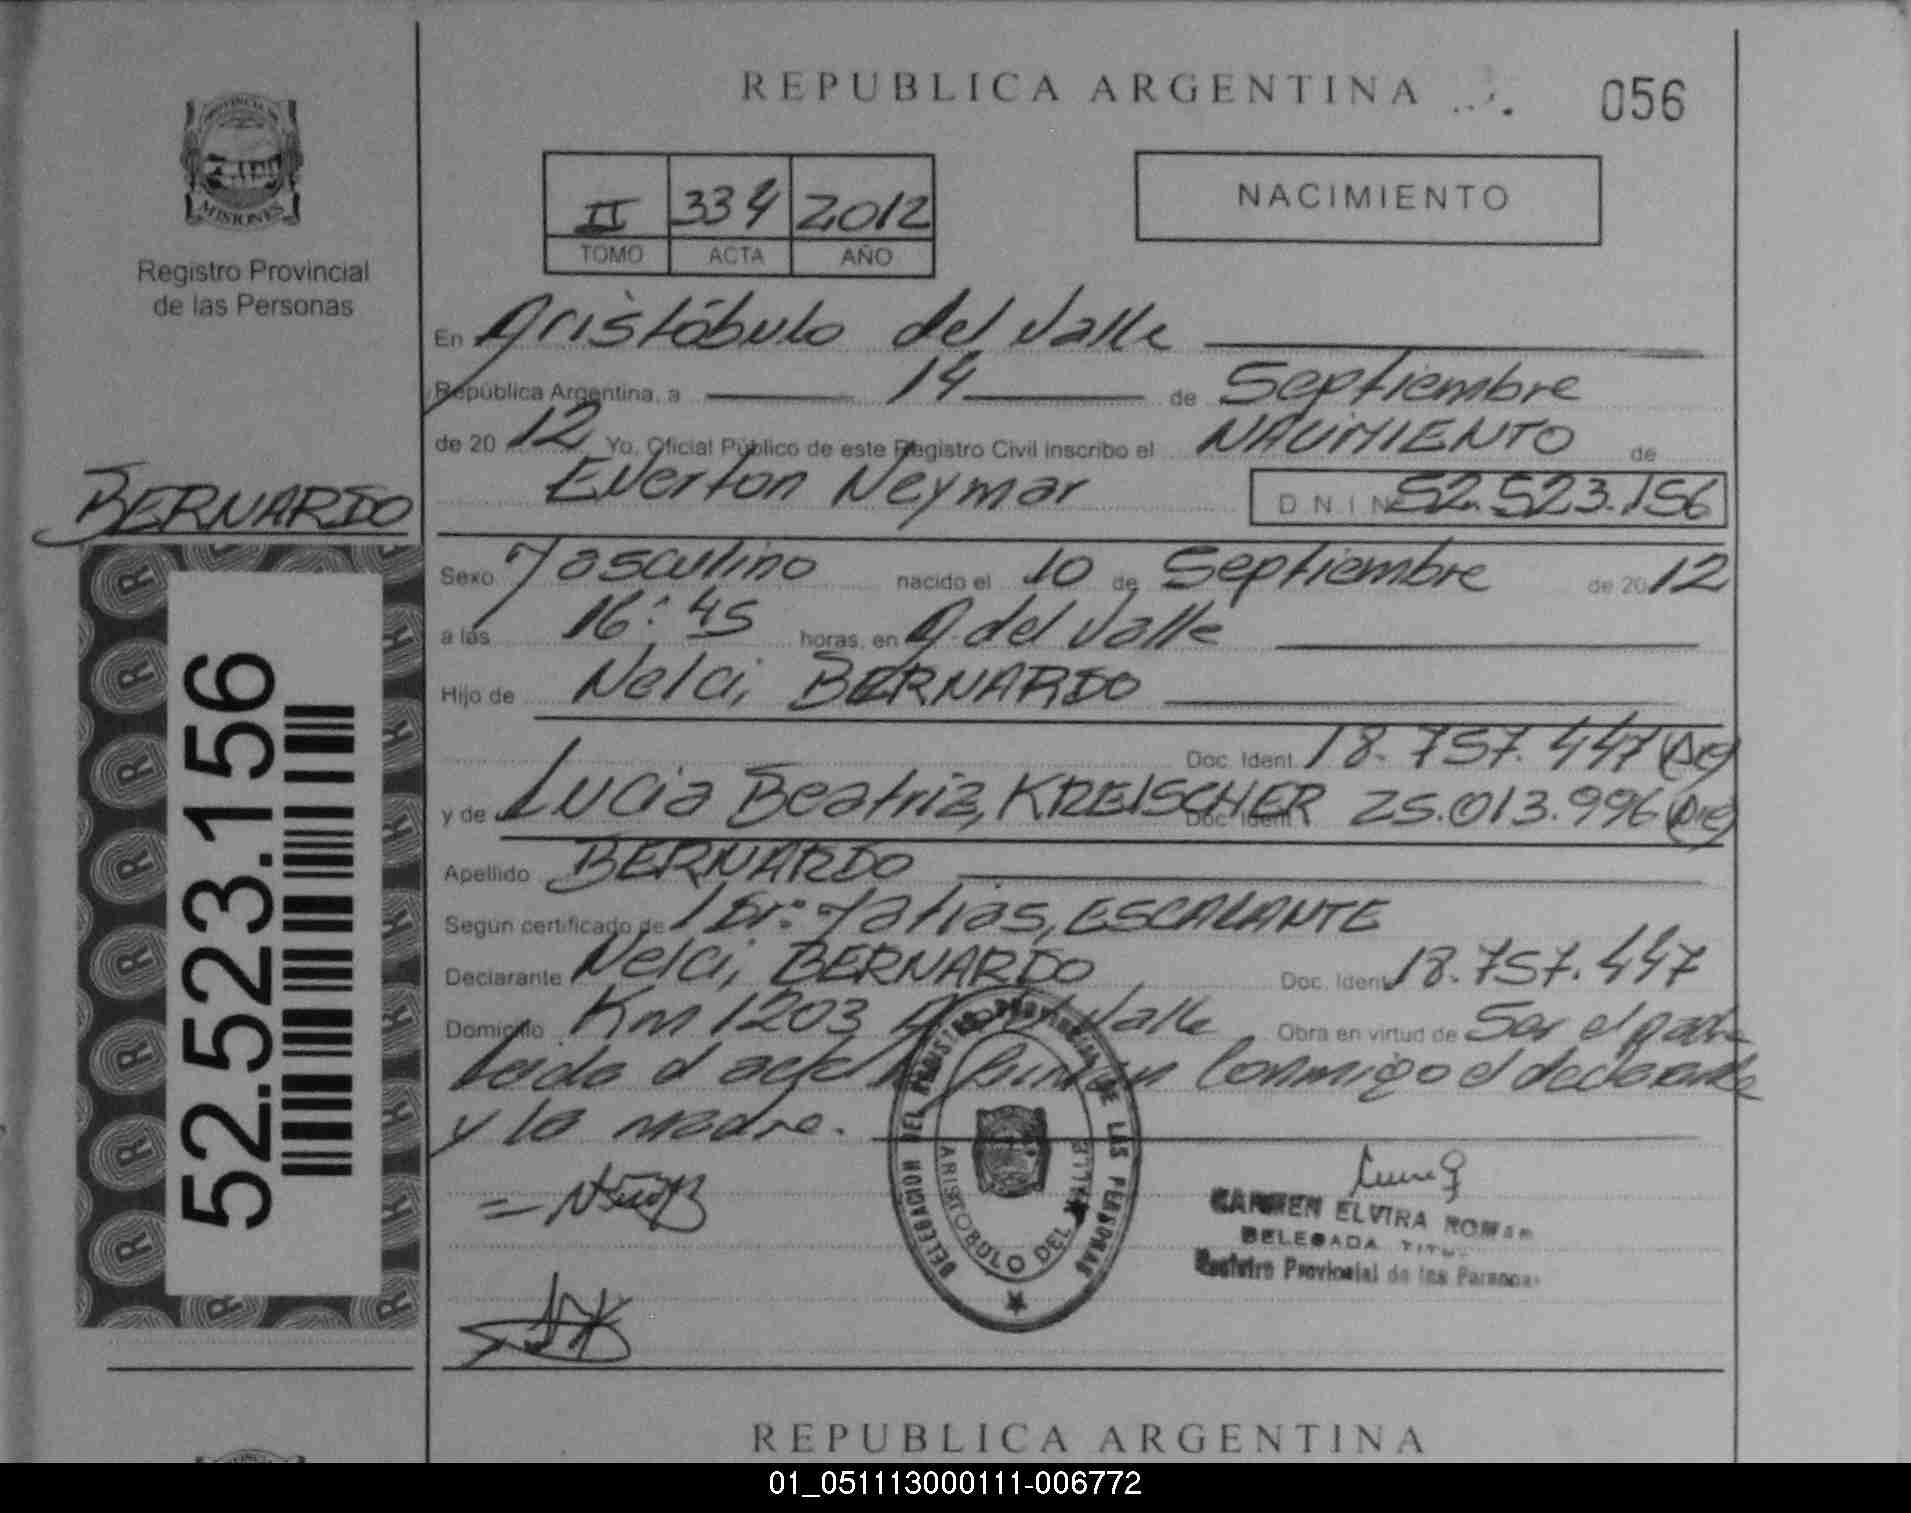 REPUBLICA ARGENTINA
056
PROVINCIA DE
MISIONES
Registro Provincial
de las Personas
II 334 2012
TOMO ACTA AÑO
NACIMIENTO
En Aristóbulo del Valle
República Argentina, a 14 de Septiembre
de 20 12 Yo, Oficial Público de este Registro Civil inscribo el NACIMIENTO de
Everton Neymar D N I Nº 52.523.156
BERNARDO
52.523.156
Sexo Masculino nacido el 10 de Septiembre de 20 12
a las 16:45 horas, en A. del Valle
Hijo de Nelci, BERNARDO
Doc. Ident. 18.757.447
y de Lucia Beatriz, KREISCHER Doc. Ident. 25.013.996
Apellido BERNARDO
Según certificado de Dr: Matias, ESCALANTE
Declarante Nelci, BERNARDO Doc. Ident. 18.757.447
Domicilio Km 1203 A. del Valle Obra en virtud de Ser el padre
Leida el acta firman conmigo el declarante
y la madre.
DELEGACION DEL REGISTRO PROVINCIAL DE LAS PERSONAS
ARISTOBULO DEL VALLE
CARMEN ELVIRA ROMAN
DELEGADA
Registro Provincial de las Personas
REPUBLICA ARGENTINA
01_051113000111-006772